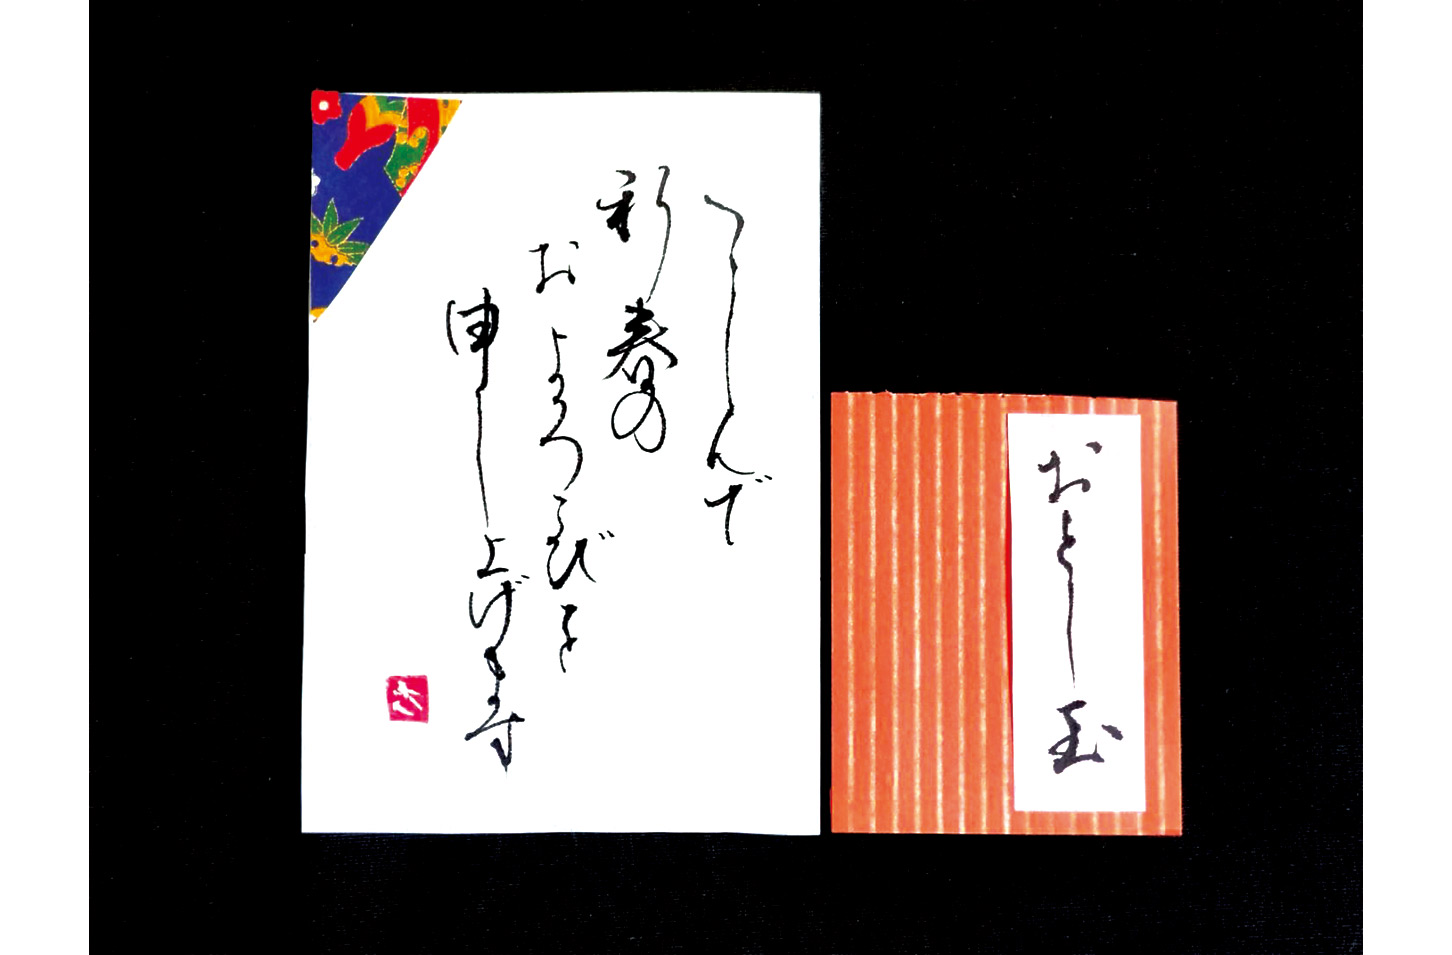 つつしんで
新春の
およろこびを
申し上げます
さ
おとし玉